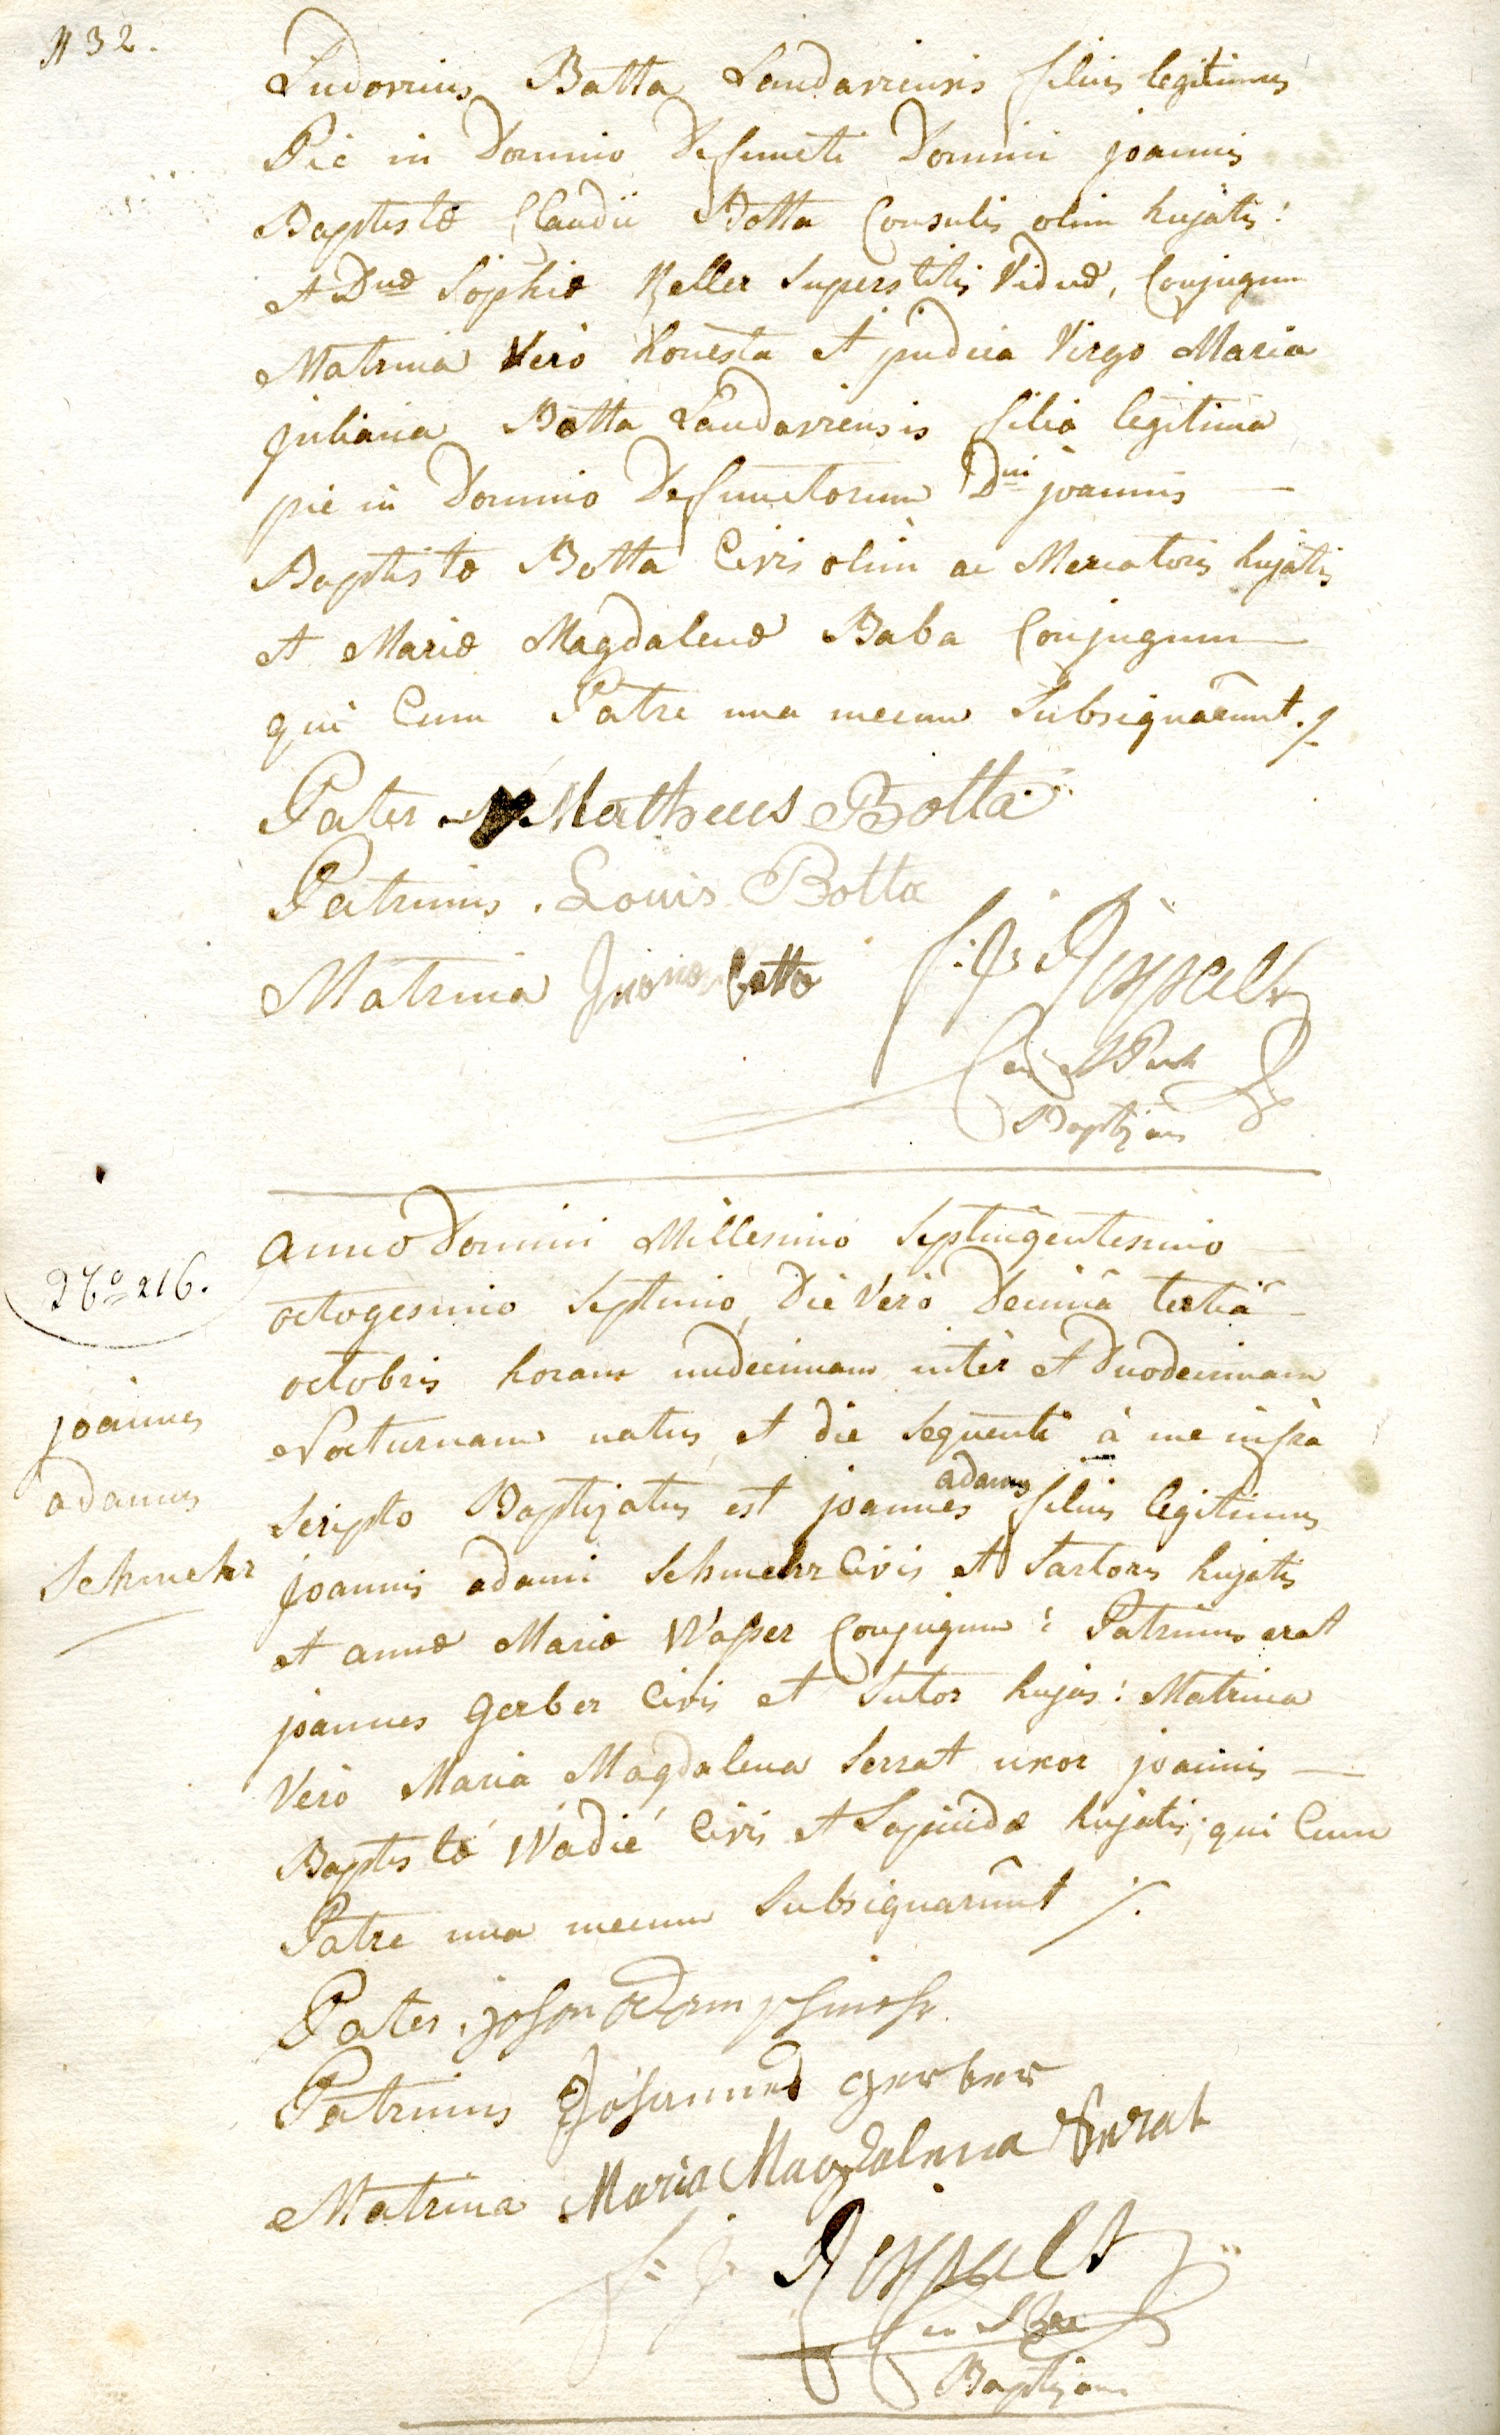 132.
Ludovicus Batta Landaviensis filius legitimus
Pie in Domino Defuncti Domini joannis
Baptistæ Claudii Botta Consulis olim hujatis:
et Dnæ Sophiæ Keller Superstitis Viduæ, Conjugum
Matrina Verò honesta et pudica Virgo Maria
juliana Botta Landaviensis filia legitima
pie in Domino Defunctorum Dni joannis
Baptistæ Botta Civis olim ac Mercatoris hujatis
et Mariæ Magdalenæ Baba Conjugum
qui Cum Patre una mecum Subsignârunt ./.
Pater Matheus Botta
Patrinus . Louis Botta
Matrina botta
Baptizans
Anno Domini Millesimo Septingentesimo
octogesimo Septimo, Die Verò Decimâ tertiâ
octobris horam undecimam intèr et Duodecimam
Nocturnam natus, et die Sequenti à me infra
Scripto Baptizatus est joannes adamus filius legitimus
joannis adami Schmehr Civis et Sartoris hujatis
et annæ Mariæ Wasser Conjugum: Patrinus erat
joannes Gerber Civis et Sutor hujas: Matrina
Verò Maria Magdalena Serrat uxor joannis
Baptistæ Wadié Civis et Lapicidæ hujatis; qui Cum
Patre una mecum Subsignarûnt ./.
No 216.
joannes
adamus
Schmehr
Pater . johan adam
Patrinus Johannes gerber
Matrina Maria Magdalena Serat
Baptizans